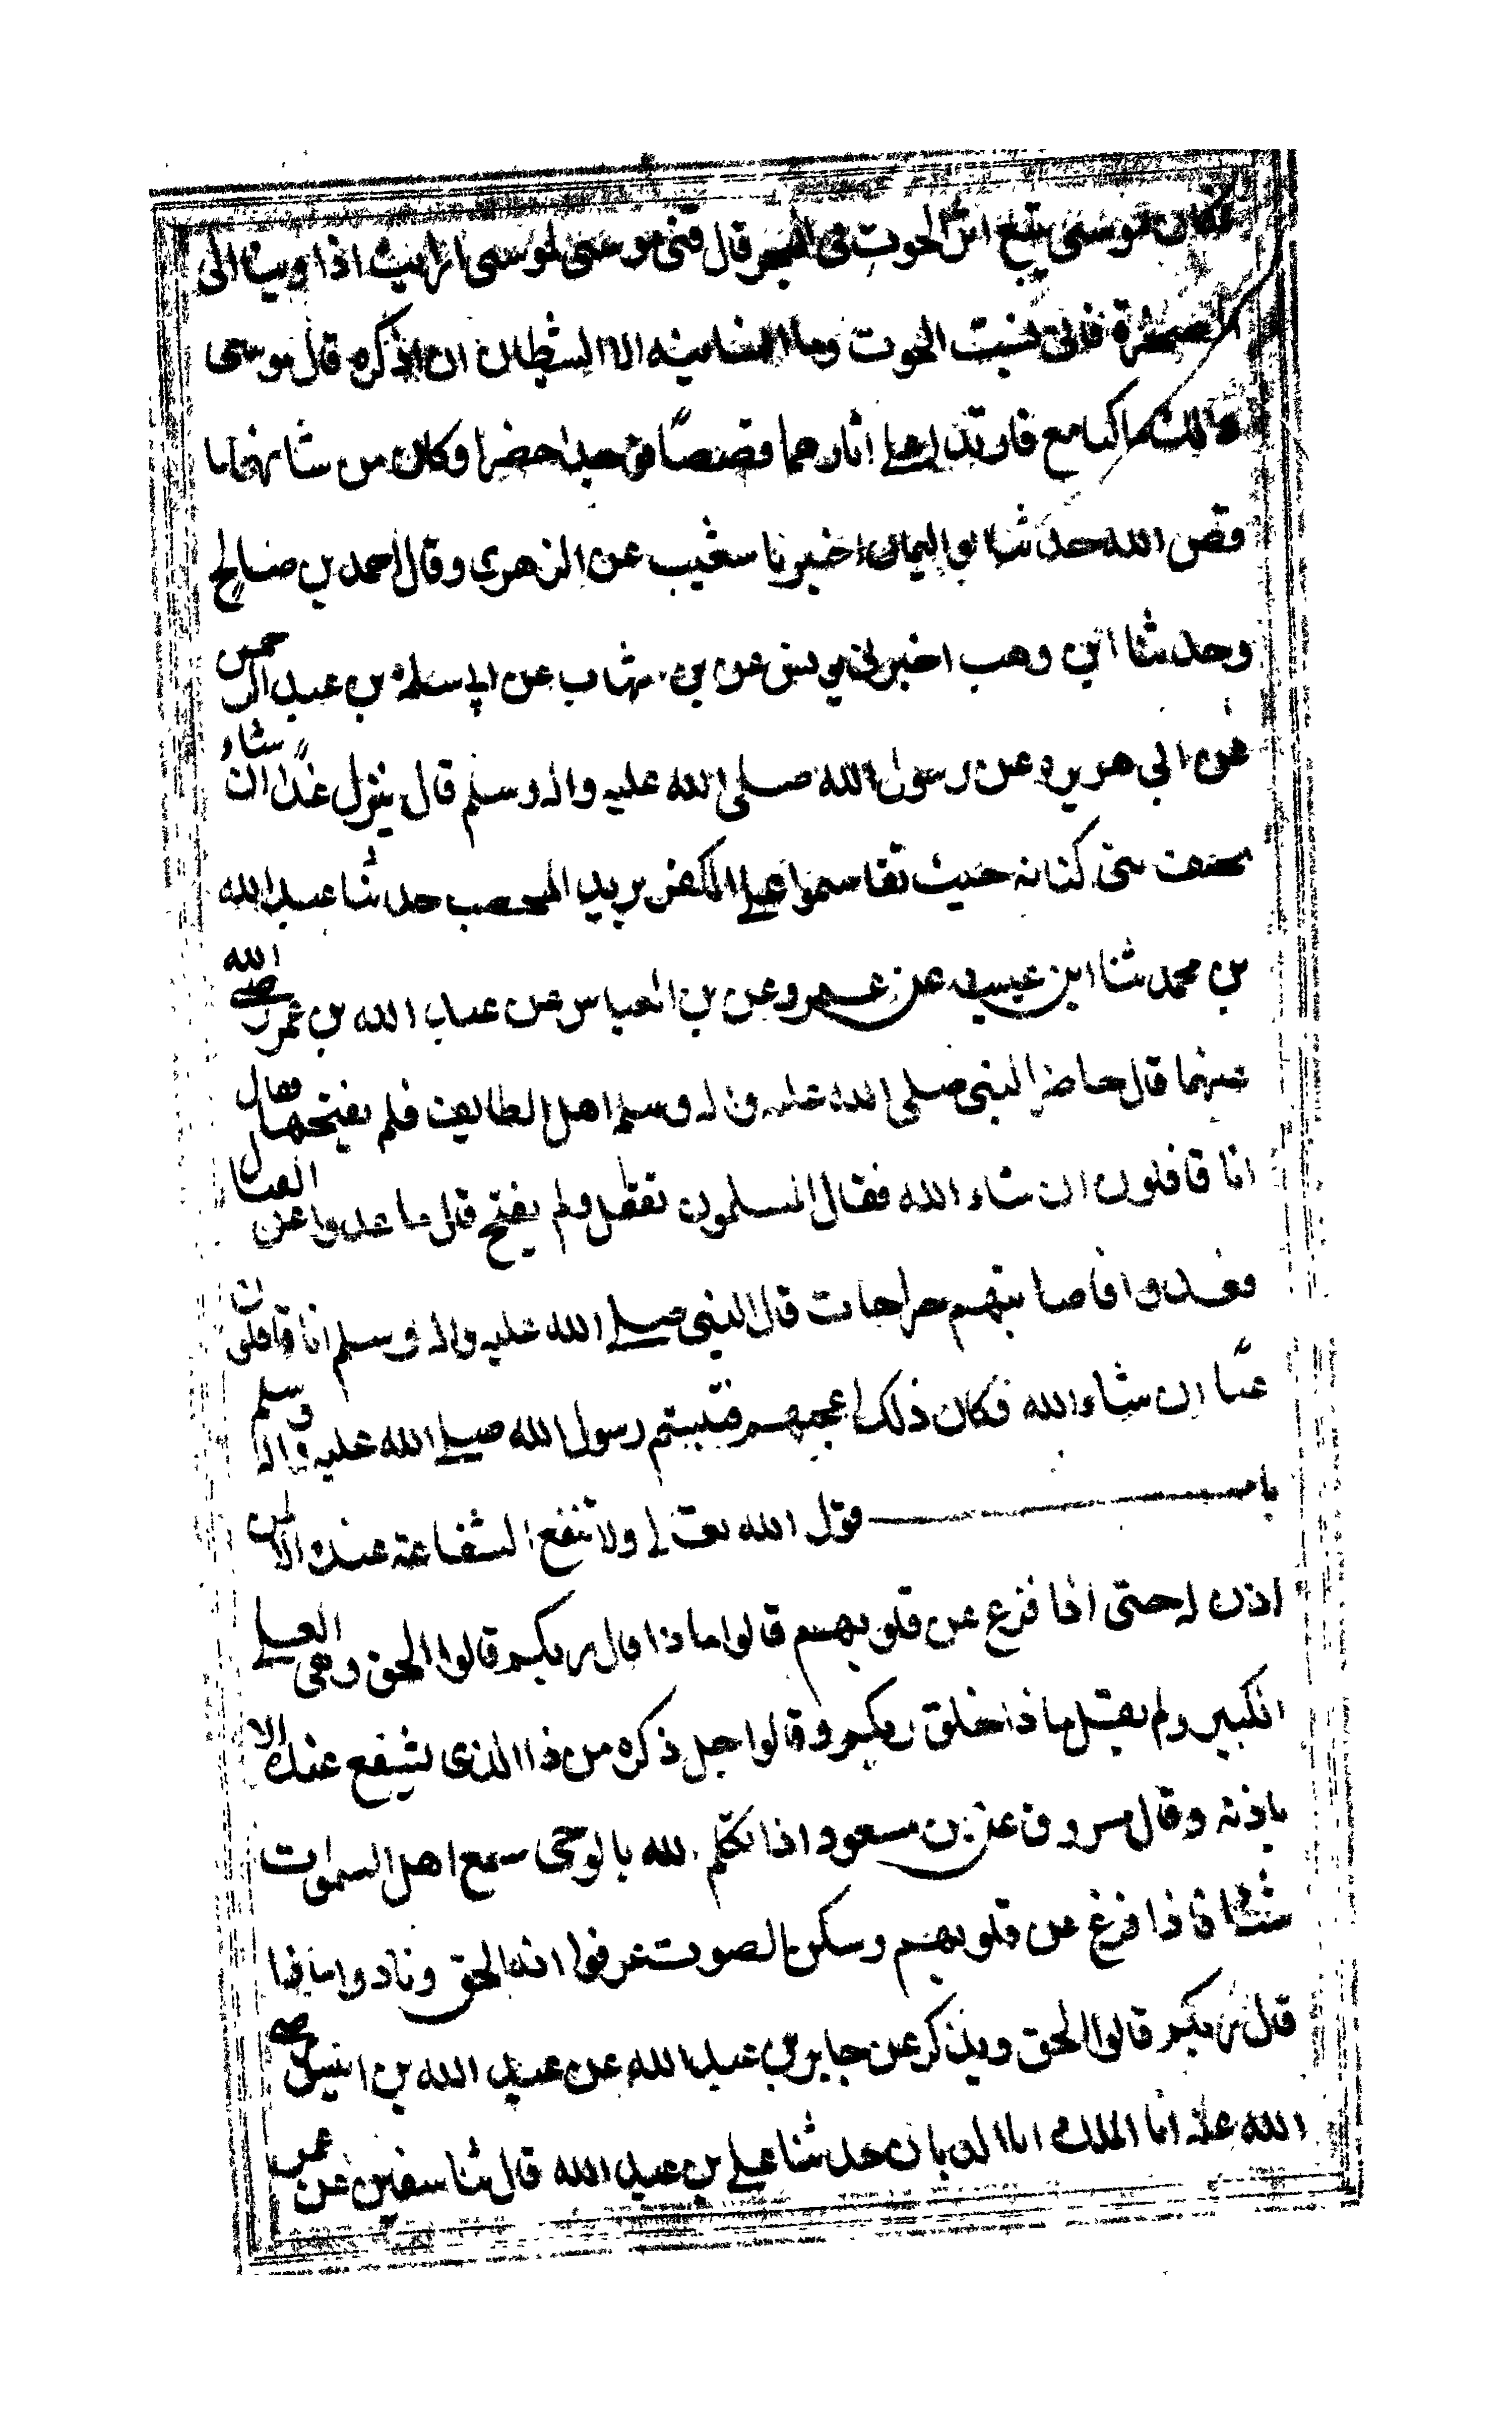 فكان موسى يتبع اثر الحوت فى البحر قال فتى موسى لموسى ارايت اذا وينا الى
الصخرة فانى نسيت الحوت وما انسانيه الا الشيطان ان اذكره قال موسى
ذالك ما كنا مع فارتدا على اثارهما قصصًا فوجدا خضرا وكان من شانهما ما
قص الله حدثنا ابو اليمان اخبرنا شعيب عن الزهرى وقال احمد بن صالح
وحدثنا ابن وهب اخبرنى يونس عن بن شهاب عن ابى سلمة بن عبد الرحمن
عن ابى هريرة عن رسول الله صلى الله عليه واله وسلم قال ننزل غدًا ان شاء
بخيف بنى كنانه حيث تقاسموا على الكفر يريد المحصب حدثنا عبد الله
بن محمد ثنا ابن عيينه عن عمرو عن بن العباس عن عبد الله بن عمر رضى الله
عنهما قال حاصر النبى صلى الله عليه واله وسلم اهل الطايف فلم يفتحها فقال
انا قافلون ان شاء الله فقال المسلمون نقفل ولم يفتح قال ما غدوا عن القتال
فغدوا فاصابتهم جراحات قال النبى صلى الله عليه واله وسلم انا قافلون
غدًا ان شاء الله فكان ذلك اعجبهم فتبسم رسول الله صلى الله عليه واله وسلم
باب قول الله تعالى ولا تنفع الشفاعة عنده الا لمن
اذن له حتى اذا فزع عن قلوبهم قالوا ماذا قال ربكم قالوا الحق وهى العلى
الكبير ولم يقل ماذا خلق ربكم وقالوا جل ذكره من ذا الذى يشفع عنده الا
باذنه وقال مسروق عن بن مسعود اذا تكلم الله بالوحى سمع اهل السموات
شيئا فاذا فزغ عن قلوبهم وسكن الصوت عرفوا انه الحق ونادوا ماذا
قال ربكم قالوا الحق ويذكر عن جابر بن عبد الله عن عبد الله بن انيس رضى
الله عنه انا الملك انا الديان حدثنا على بن عبد الله قال ثنا سفين عن عمر